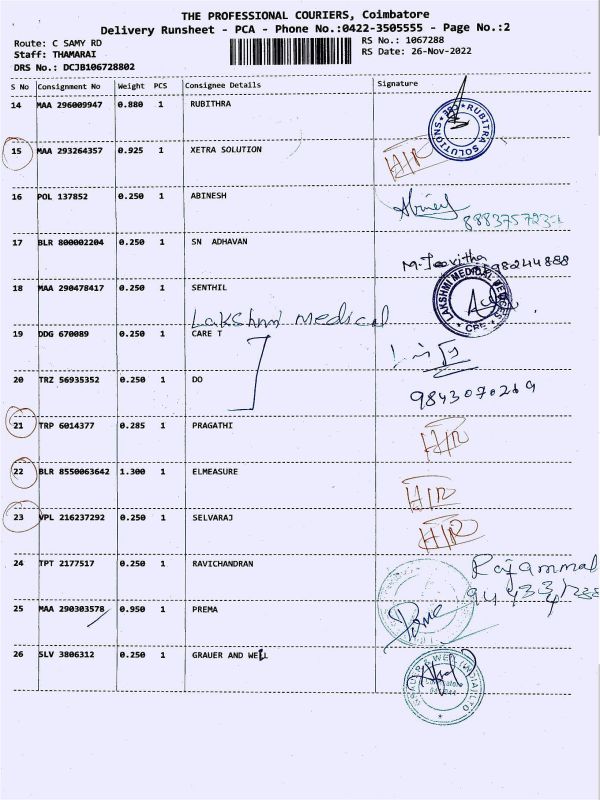 THE PROFESSIONAL COURIERS, Coimbatore
Delivery Runsheet - PCA - Phone No.:0422-3505555 - Page No.:2
Route: C SAMY RD
RS No.: 1067288
Staff: THAMARAI
RS Date: 26-Nov-2022
DRS No.: DCJB106728802
S No Consignment No Weight PCS Consignee Details Signature
14 MAA 296009947 0.880 1 RUBITHRA
RUBITRA SOLUTIONS
15 MAA 293264357 0.925 1 XETRA SOLUTION
H/R
16 POL 137852 0.250 1 ABINESH
17 BLR 800002204 0.250 1 SN ADHAVAN
18 MAA 290478417 0.250 1 SENTHIL
LAKSHMI MEDICAL
CBE
Lakshmi medical
19 DDG 670089 0.250 1 CARE T
20 TRZ 56935352 0.250 1 DO
9843070269
21 TRP 6014377 0.285 1 PRAGATHI
H/R
22 BLR 8550063642 1.300 1 ELMEASURE
H/R
23 VPL 216237292 0.250 1 SELVARAJ
H/R
24 TPT 2177517 0.250 1 RAVICHANDRAN
Rajammal
25 MAA 290303578 0.950 1 PREMA
26 SLV 3806312 0.250 1 GRAUER AND WEIL